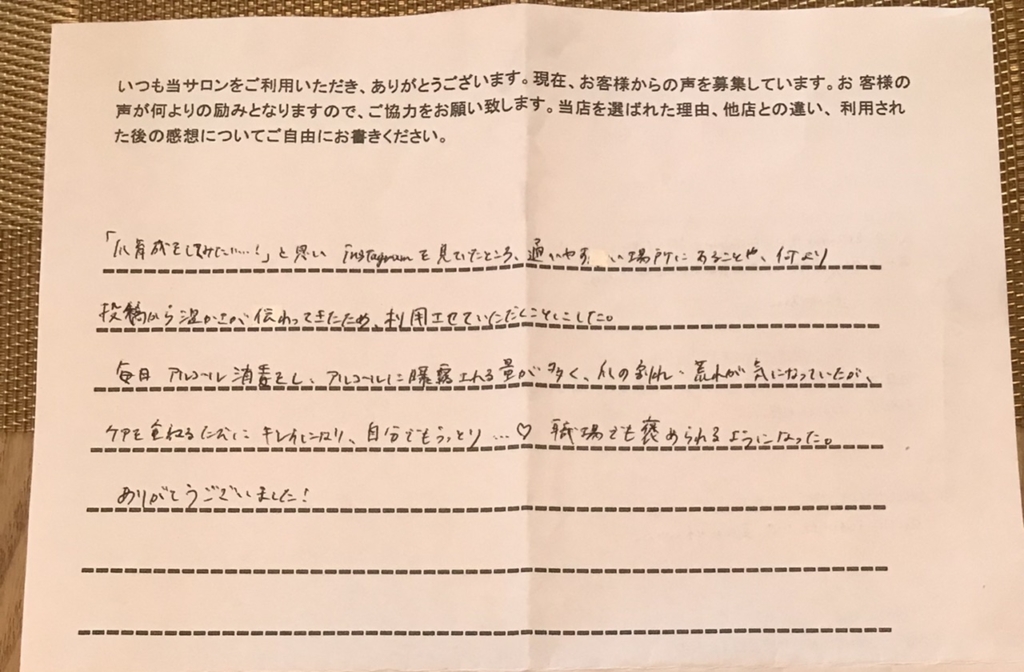 いつも当サロンをご利用いただき、ありがとうございます。現在、お客様からの声を募集しています。お客様の
声が何よりの励みとなりますので、ご協力をお願い致します。当店を選ばれた理由、他店との違い、利用され
た後の感想についてご自由にお書きください。
「爪育成をしてみたい…!」と思い Instagramを見ていたところ、通いやすい場所にあることや、何より
投稿から温かさが伝わってきたため、利用させていただくことにした。
毎日 アルコール消毒をし、アルコールに曝露される量が多く、爪の割れ・荒れが気になっていたが、
ケアを重ねるたびに キレイになり、自分でもうっとり…♡ 職場でも褒められるようになった。
ありがとうございました!